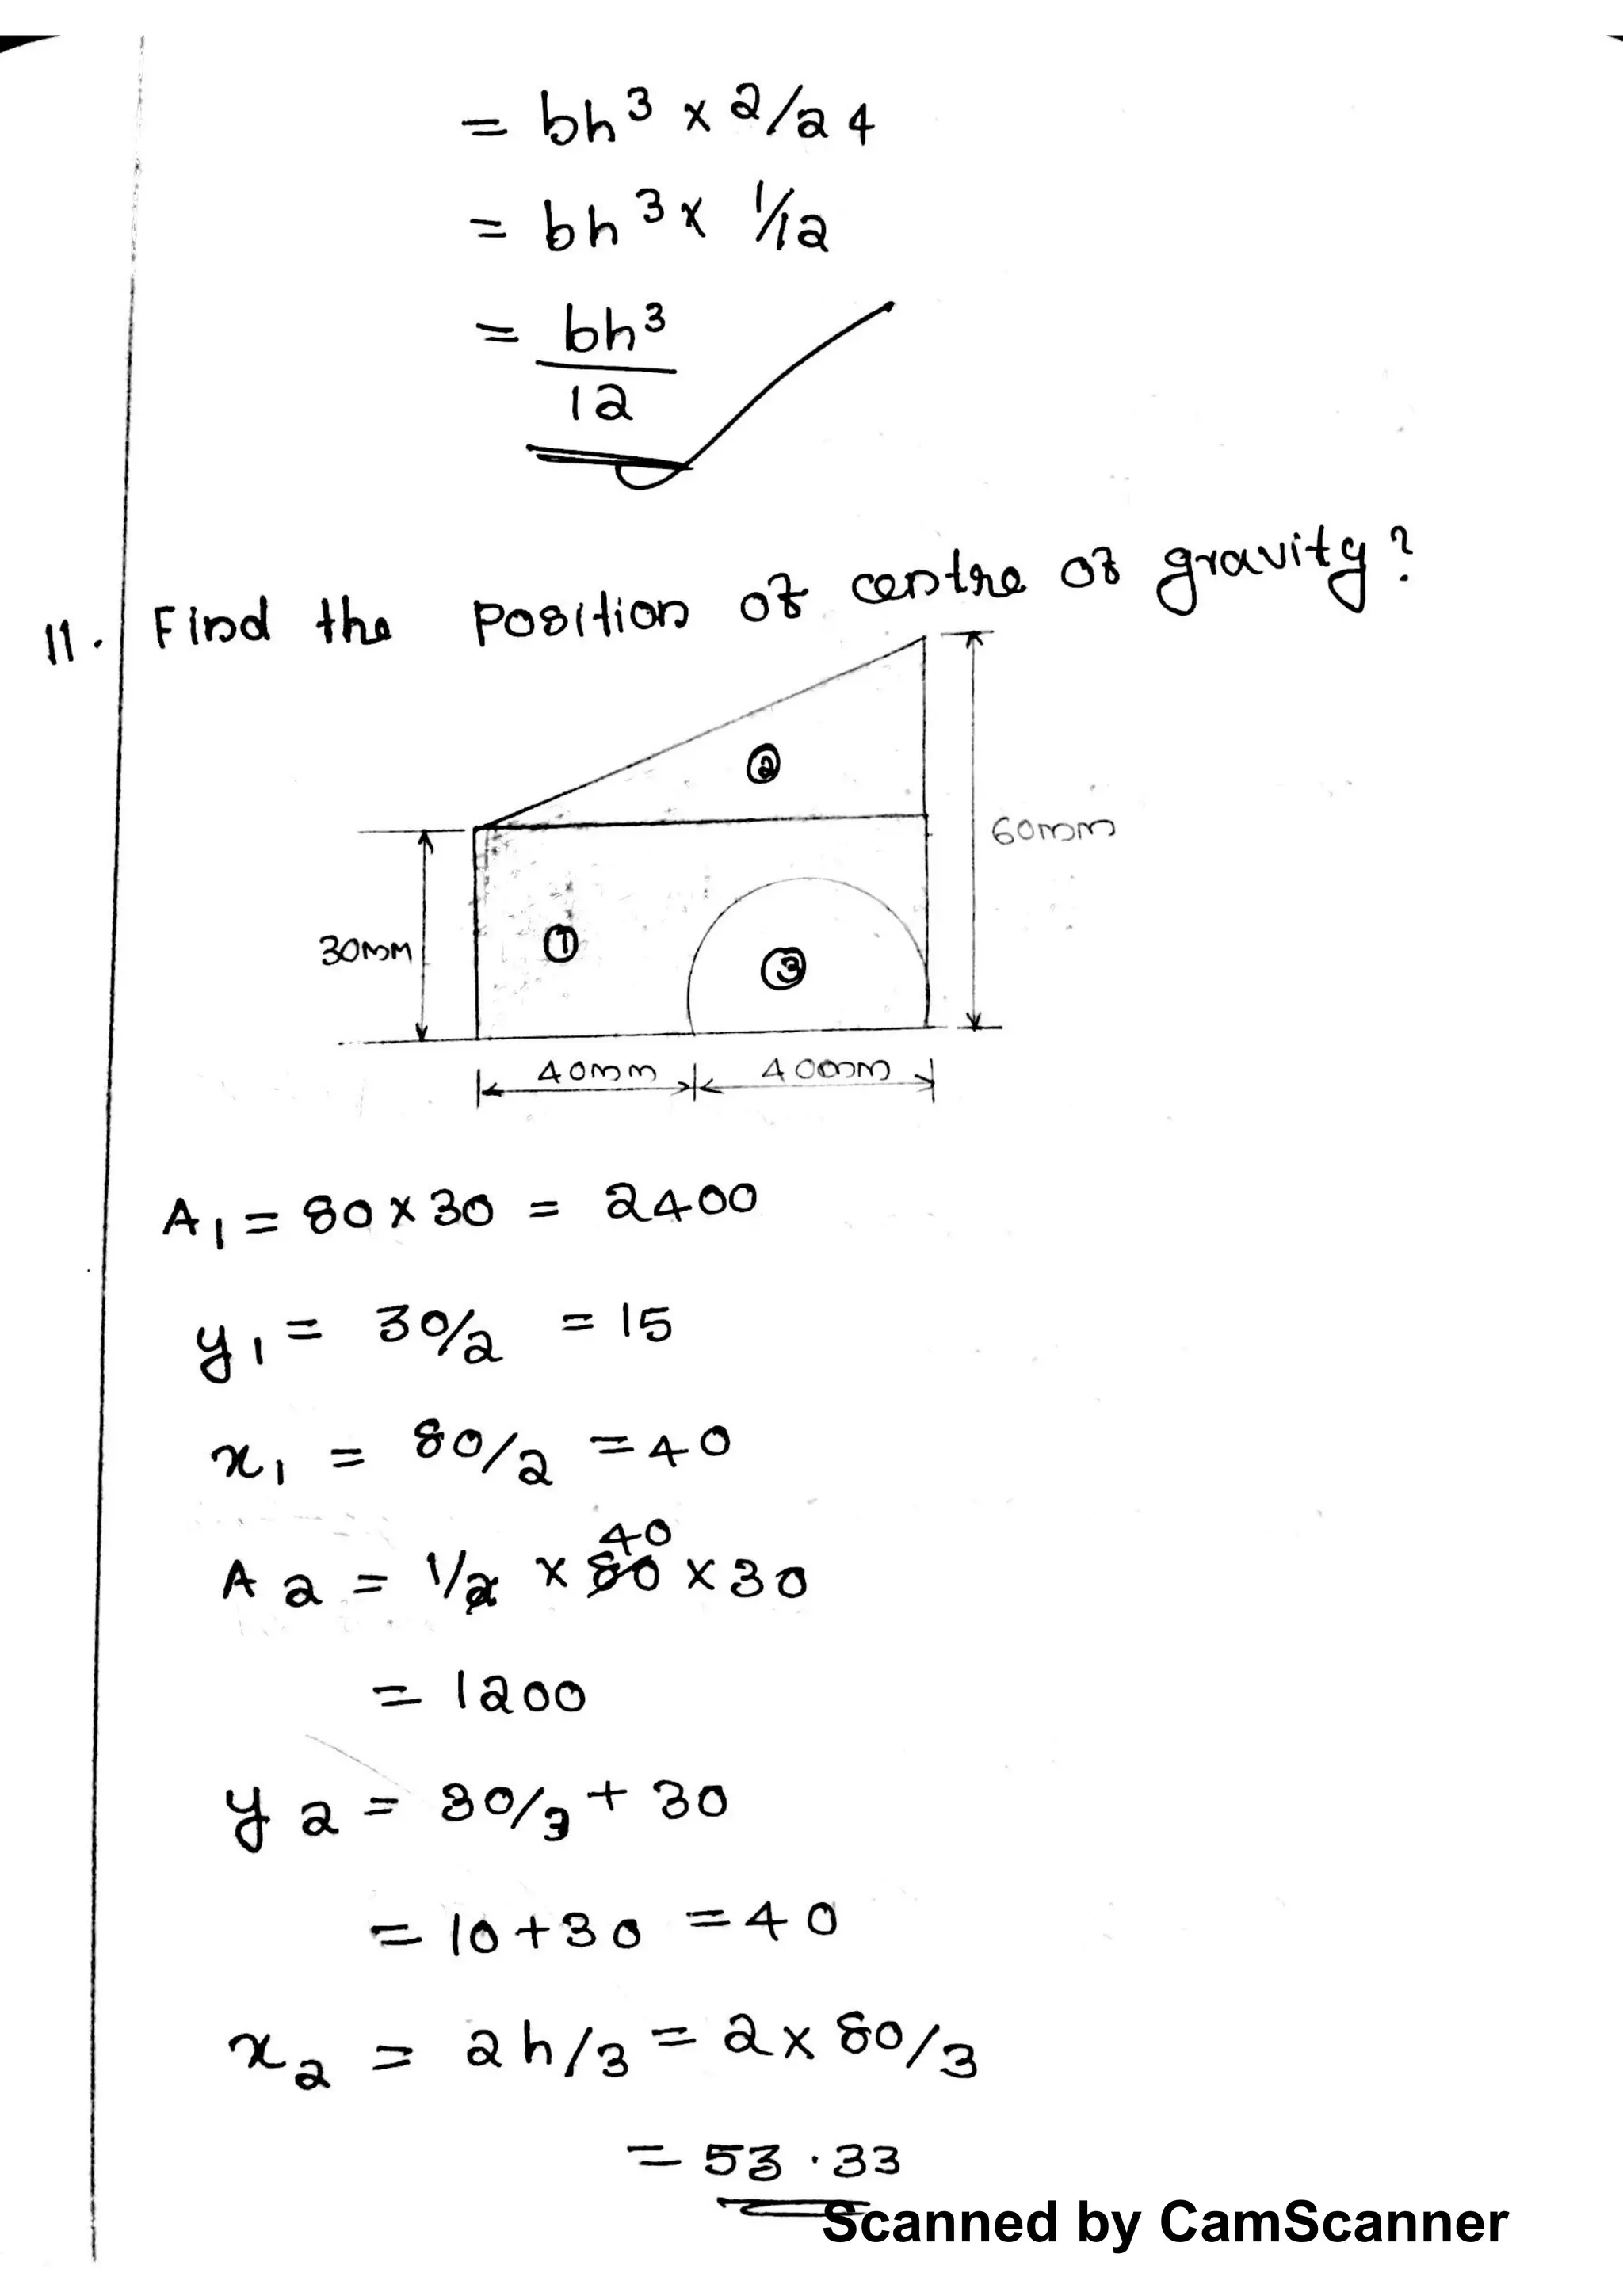 = bh³ x 2/24
= bh³ x 1/12
= bh³
12
11. Find the position of centre of gravity?
②
60mm
30mm
①
③
40mm 40mm
A1 = 80 x 30 = 2400
y1 = 30/2 = 15
x1 = 80/2 = 40
40
A2 = 1/2 x 80 x 30
= 1200
y2 = 30/3 + 30
= 10 + 30 = 40
x2 = 2h/3 = 2 x 80/3
= 53.33
Scanned by CamScanner